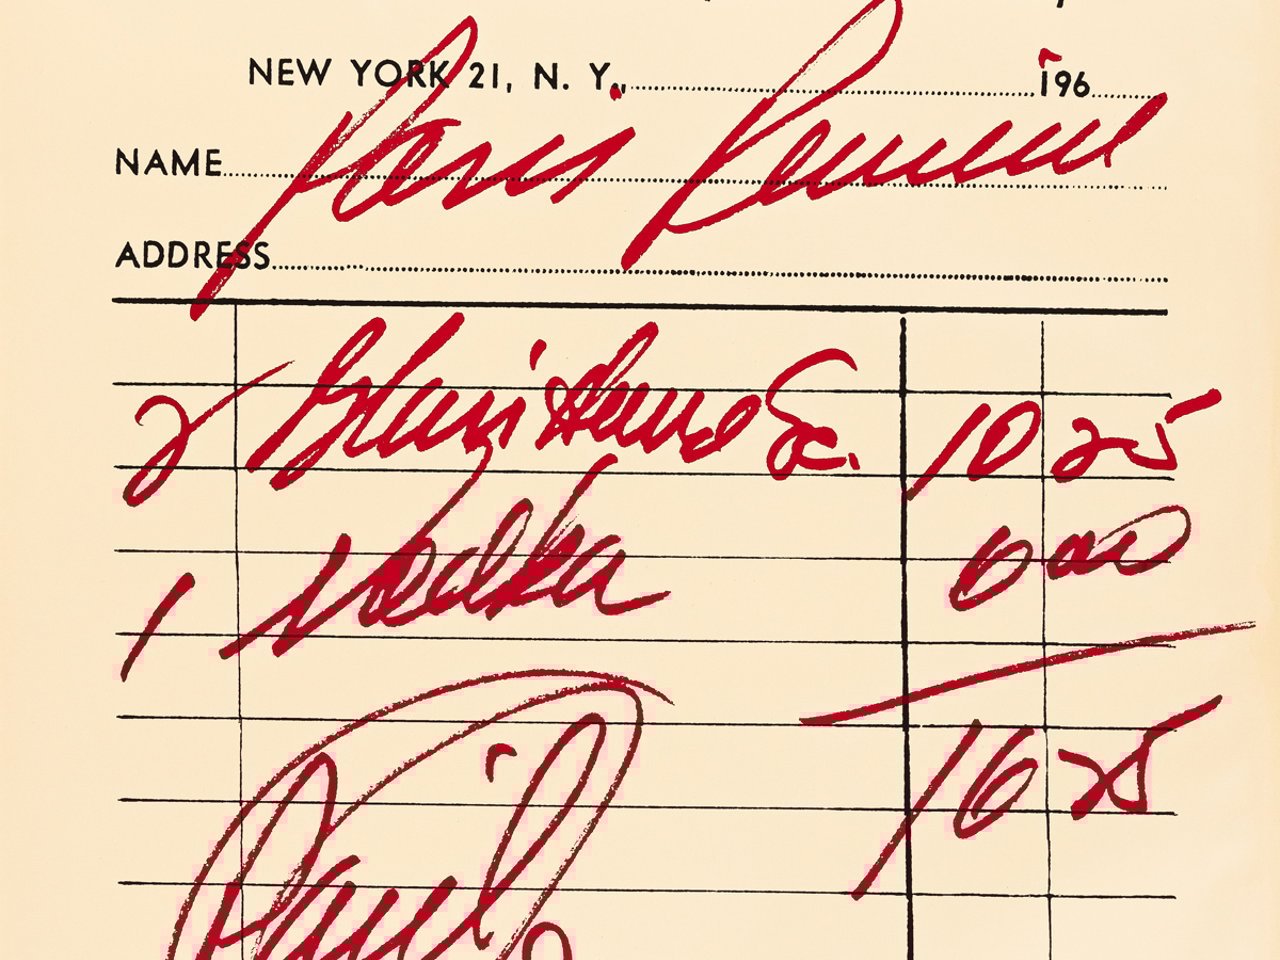 NEW YORK 21, N. Y., 196
NAME Paris
ADDRESS
2 10 25
1 Vodka 6 00
16 25
Paid